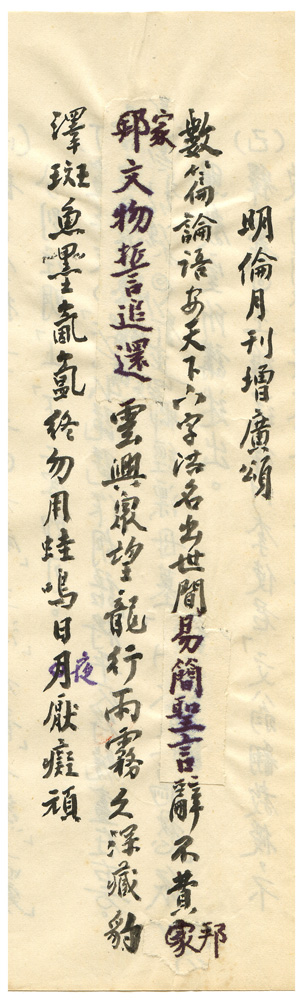 明倫月刊增廣頌
數篇論語安天下六字洪名出世間易簡聖言辭不費邦
家文物誓追還雲興眾望龍行雨霧久深藏豹
澤斑魚墨氤氳終勿用蛙鳴日夜厭癡頑